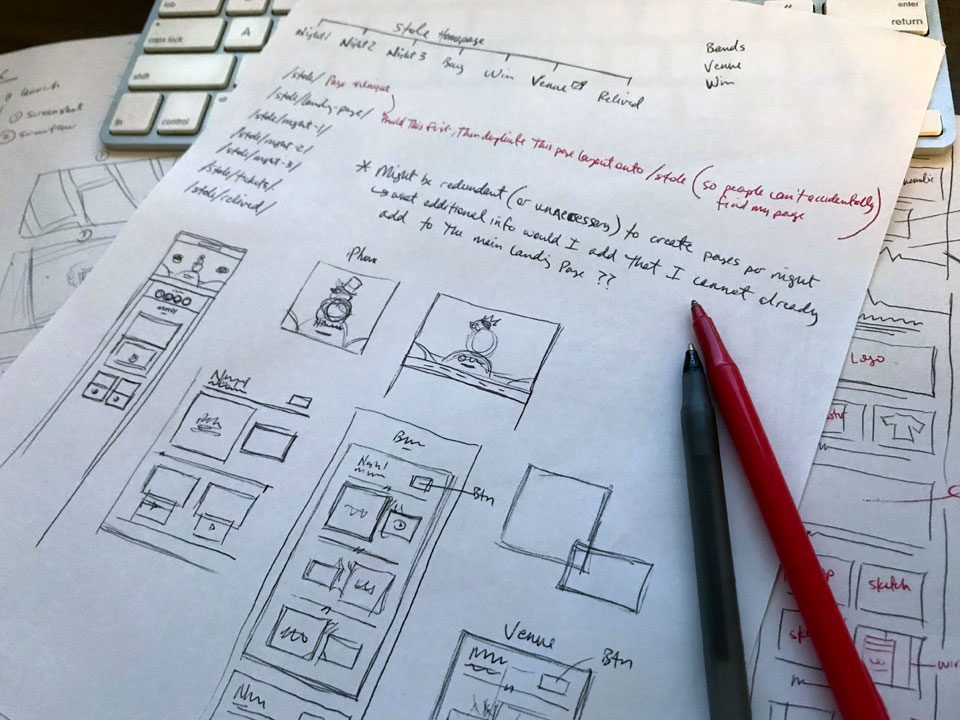 tab
caps lock
A
shift
fn
control
enter
return
launch
① screenshot
② screenflow
Stole Homepage
Night 1
Night 2
Night 3
Buy
Win
Venue
Relived
Bands
Venue
Win
/stole/ Page unique
/stole/landing-page/
/stole/night-1/
/stole/night-2/
/stole/night-3/
/stole/tickets/
/stole/relived/
Build This First, Then duplicate This page layout onto /stole (so people can't accidentally
find my page)
* Might be redundant (or unnecessary) to create pages per night
↳ what additional info would I add that I cannot already
add to the main landing page ??
Phone
Night 1
Btn
Venue
Btn
Logo
sketch